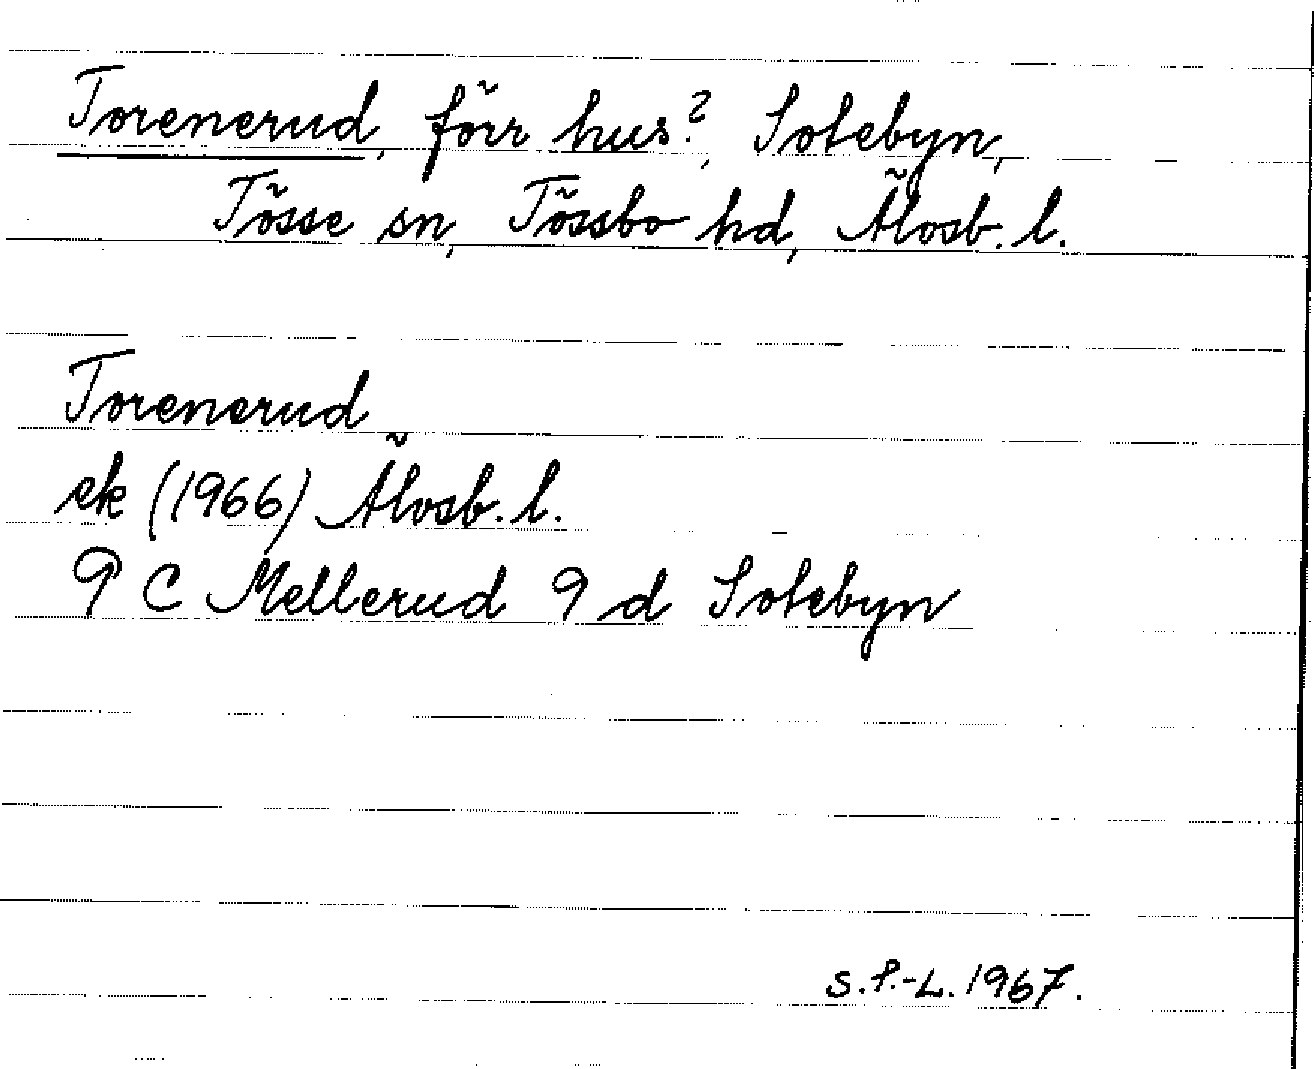 Torenerud, förr hus?, Sotebyn,
Tösse sn, Tössbo hd, Älvsb. l.
Torenerud
ek (1966) Älvsb. l.
9 C Mellerud 9 d Sotebyn
S.P.-L. 1967.